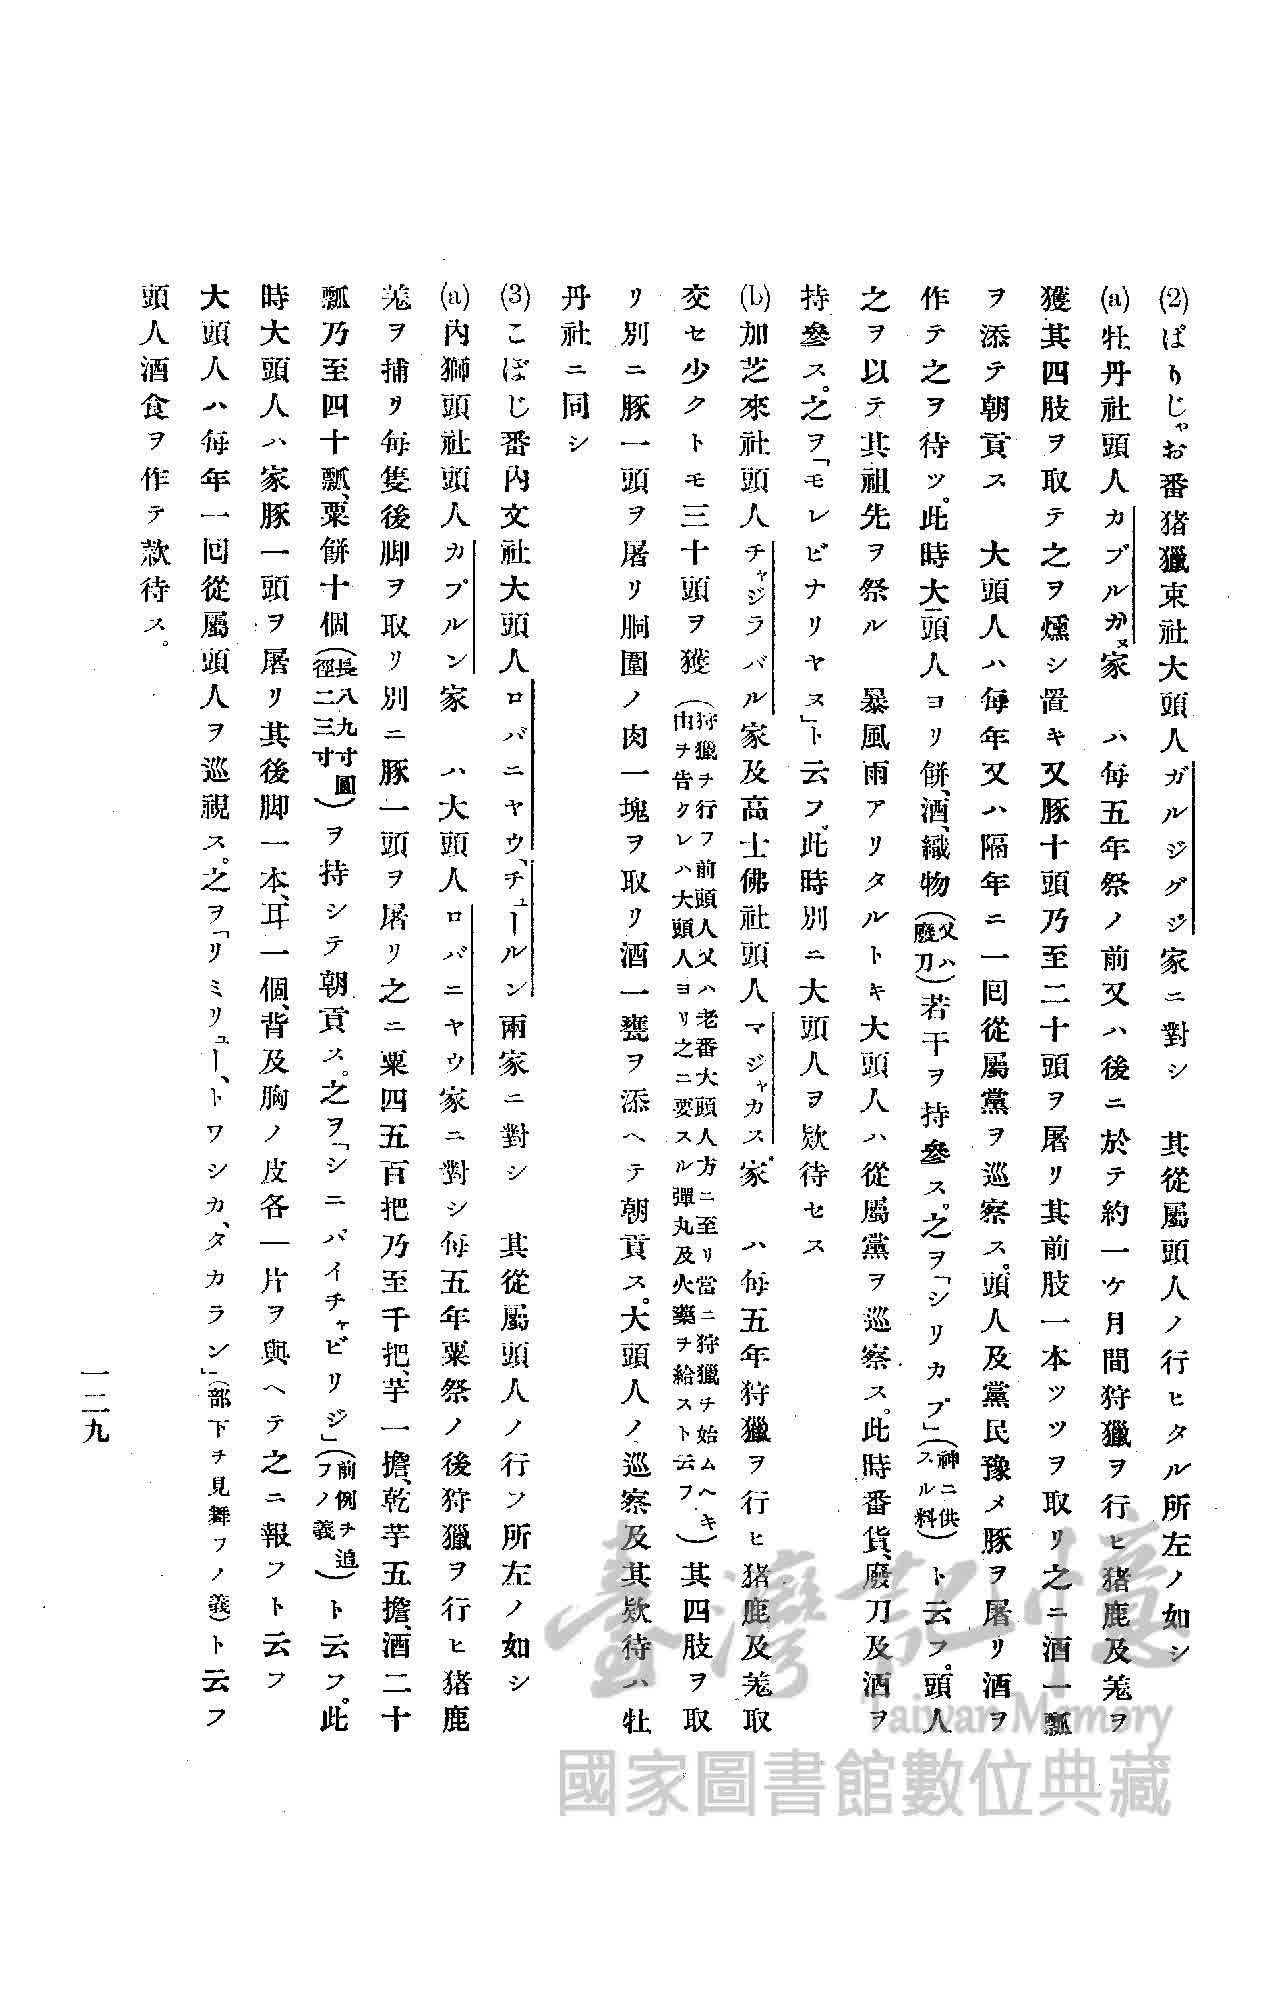 (2)ぱりじゃお番猪朥束社大頭人ガルジグジ家ニ對シ　其從屬頭人ノ行ヒタル所左ノ如シ
(a)牡丹社頭人カブルガヌ家　ハ每五年祭ノ前又ハ後ニ於テ約一ケ月間狩獵ヲ行ヒ猪鹿及羌ヲ
獲其四肢ヲ取テ之ヲ燻シ置キ又豚十頭乃至二十頭ヲ屠リ其前肢一本ツツヲ取リ之ニ酒一瓢
ヲ添テ朝貢ス　大頭人ハ每年又ハ隔年ニ一囘從屬黨ヲ巡察ス。頭人及黨民豫メ豚ヲ屠リ酒ヲ
作テ之ヲ待ツ。此時大頭人ヨリ餅、酒、織物(又ハ廢刀)若干ヲ持參ス。之ヲ「シリカプ」(神ニ供スル料)ト云フ。頭人
之ヲ以テ其祖先ヲ祭ル　暴風雨アリタルトキ大頭人ハ從屬黨ヲ巡察ス。此時番貨、廢刀及酒ヲ
持參ス。之ヲ「モレビナリヤス」ト云フ。此時別ニ大頭人ヲ欵待セス
(b)加芝來社頭人チャジラバル家及高士佛社頭人マジャカス家　ハ每五年狩獵ヲ行ヒ猪鹿及羌取
交セ少クトモ三十頭ヲ獲(狩獵ヲ行フ前頭人又ハ老番大頭人方ニ至リ當ニ狩獵ヲ始ムヘキ由ヲ告クレハ大頭人ヨリ之ニ要スル彈丸及火藥ヲ給スト云フ)其四肢ヲ取
リ別ニ豚一頭ヲ屠リ胴圍ノ肉一塊ヲ取リ酒一甕ヲ添ヘテ朝貢ス。大頭人ノ巡察及其欵待ハ牡
丹社ニ同シ
(3)こぼじ番内文社大頭人ロバニヤウ、チュールン兩家ニ對シ　其從屬頭人ノ行フ所左ノ如シ
(a)内獅頭社頭人カプルン家　ハ大頭人ロバニヤウ家ニ對シ每五年粟祭ノ後狩獵ヲ行ヒ猪鹿
羌ヲ捕リ每隻後脚ヲ取リ別ニ豚一頭ヲ屠リ之ニ粟四五百把乃至千把、芋一擔、乾芋五擔、酒二十
瓢乃至四十瓢、粟餅十個(長八九寸圓徑二三寸)ヲ持シテ朝貢ス。之ヲ「シニバイチャビリジ」(前例ヲ追フノ義)ト云フ。此
時大頭人ハ家豚一頭ヲ屠リ其後脚一本、耳一個、背及胸ノ皮各一片ヲ與ヘテ之ニ報フト云フ
大頭人ハ每年一囘從屬頭人ヲ巡視ス。之ヲ「リミリュー、トワシカ、タカラン」(部下ヲ見舞フノ義)ト云フ
頭人酒食ヲ作テ欵待ス。
一二九
臺灣記憶
Taiwan Memory
國家圖書館數位典藏